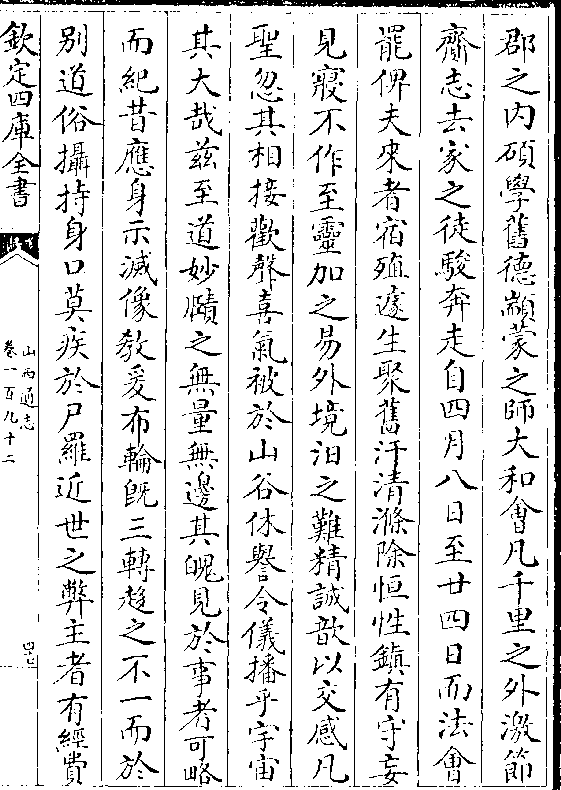 郡之内碩學舊德顓蒙之師大和會凡千里之外激節
齋志去家之徒駿奔走自四月八日至廿四日而法會
罷俾夫來者宿殖遽生聚舊汗清滌除恒性鎮有守妄
見寢不作至靈加之易外境汨之難精誠歆以交感凡
聖忽其相接歡聲喜氣被於山谷休譽令儀播乎宇宙
其大哉兹至道妙賾之無量無邊其魄見於事者可略
而紀昔應身示滅像教爰布輪旣三轉趍之不一而於
别道俗攝持身口莫疾於尸羅近世之弊主者有經貴
欽定四庫全書
山西通志
卷一百九十二